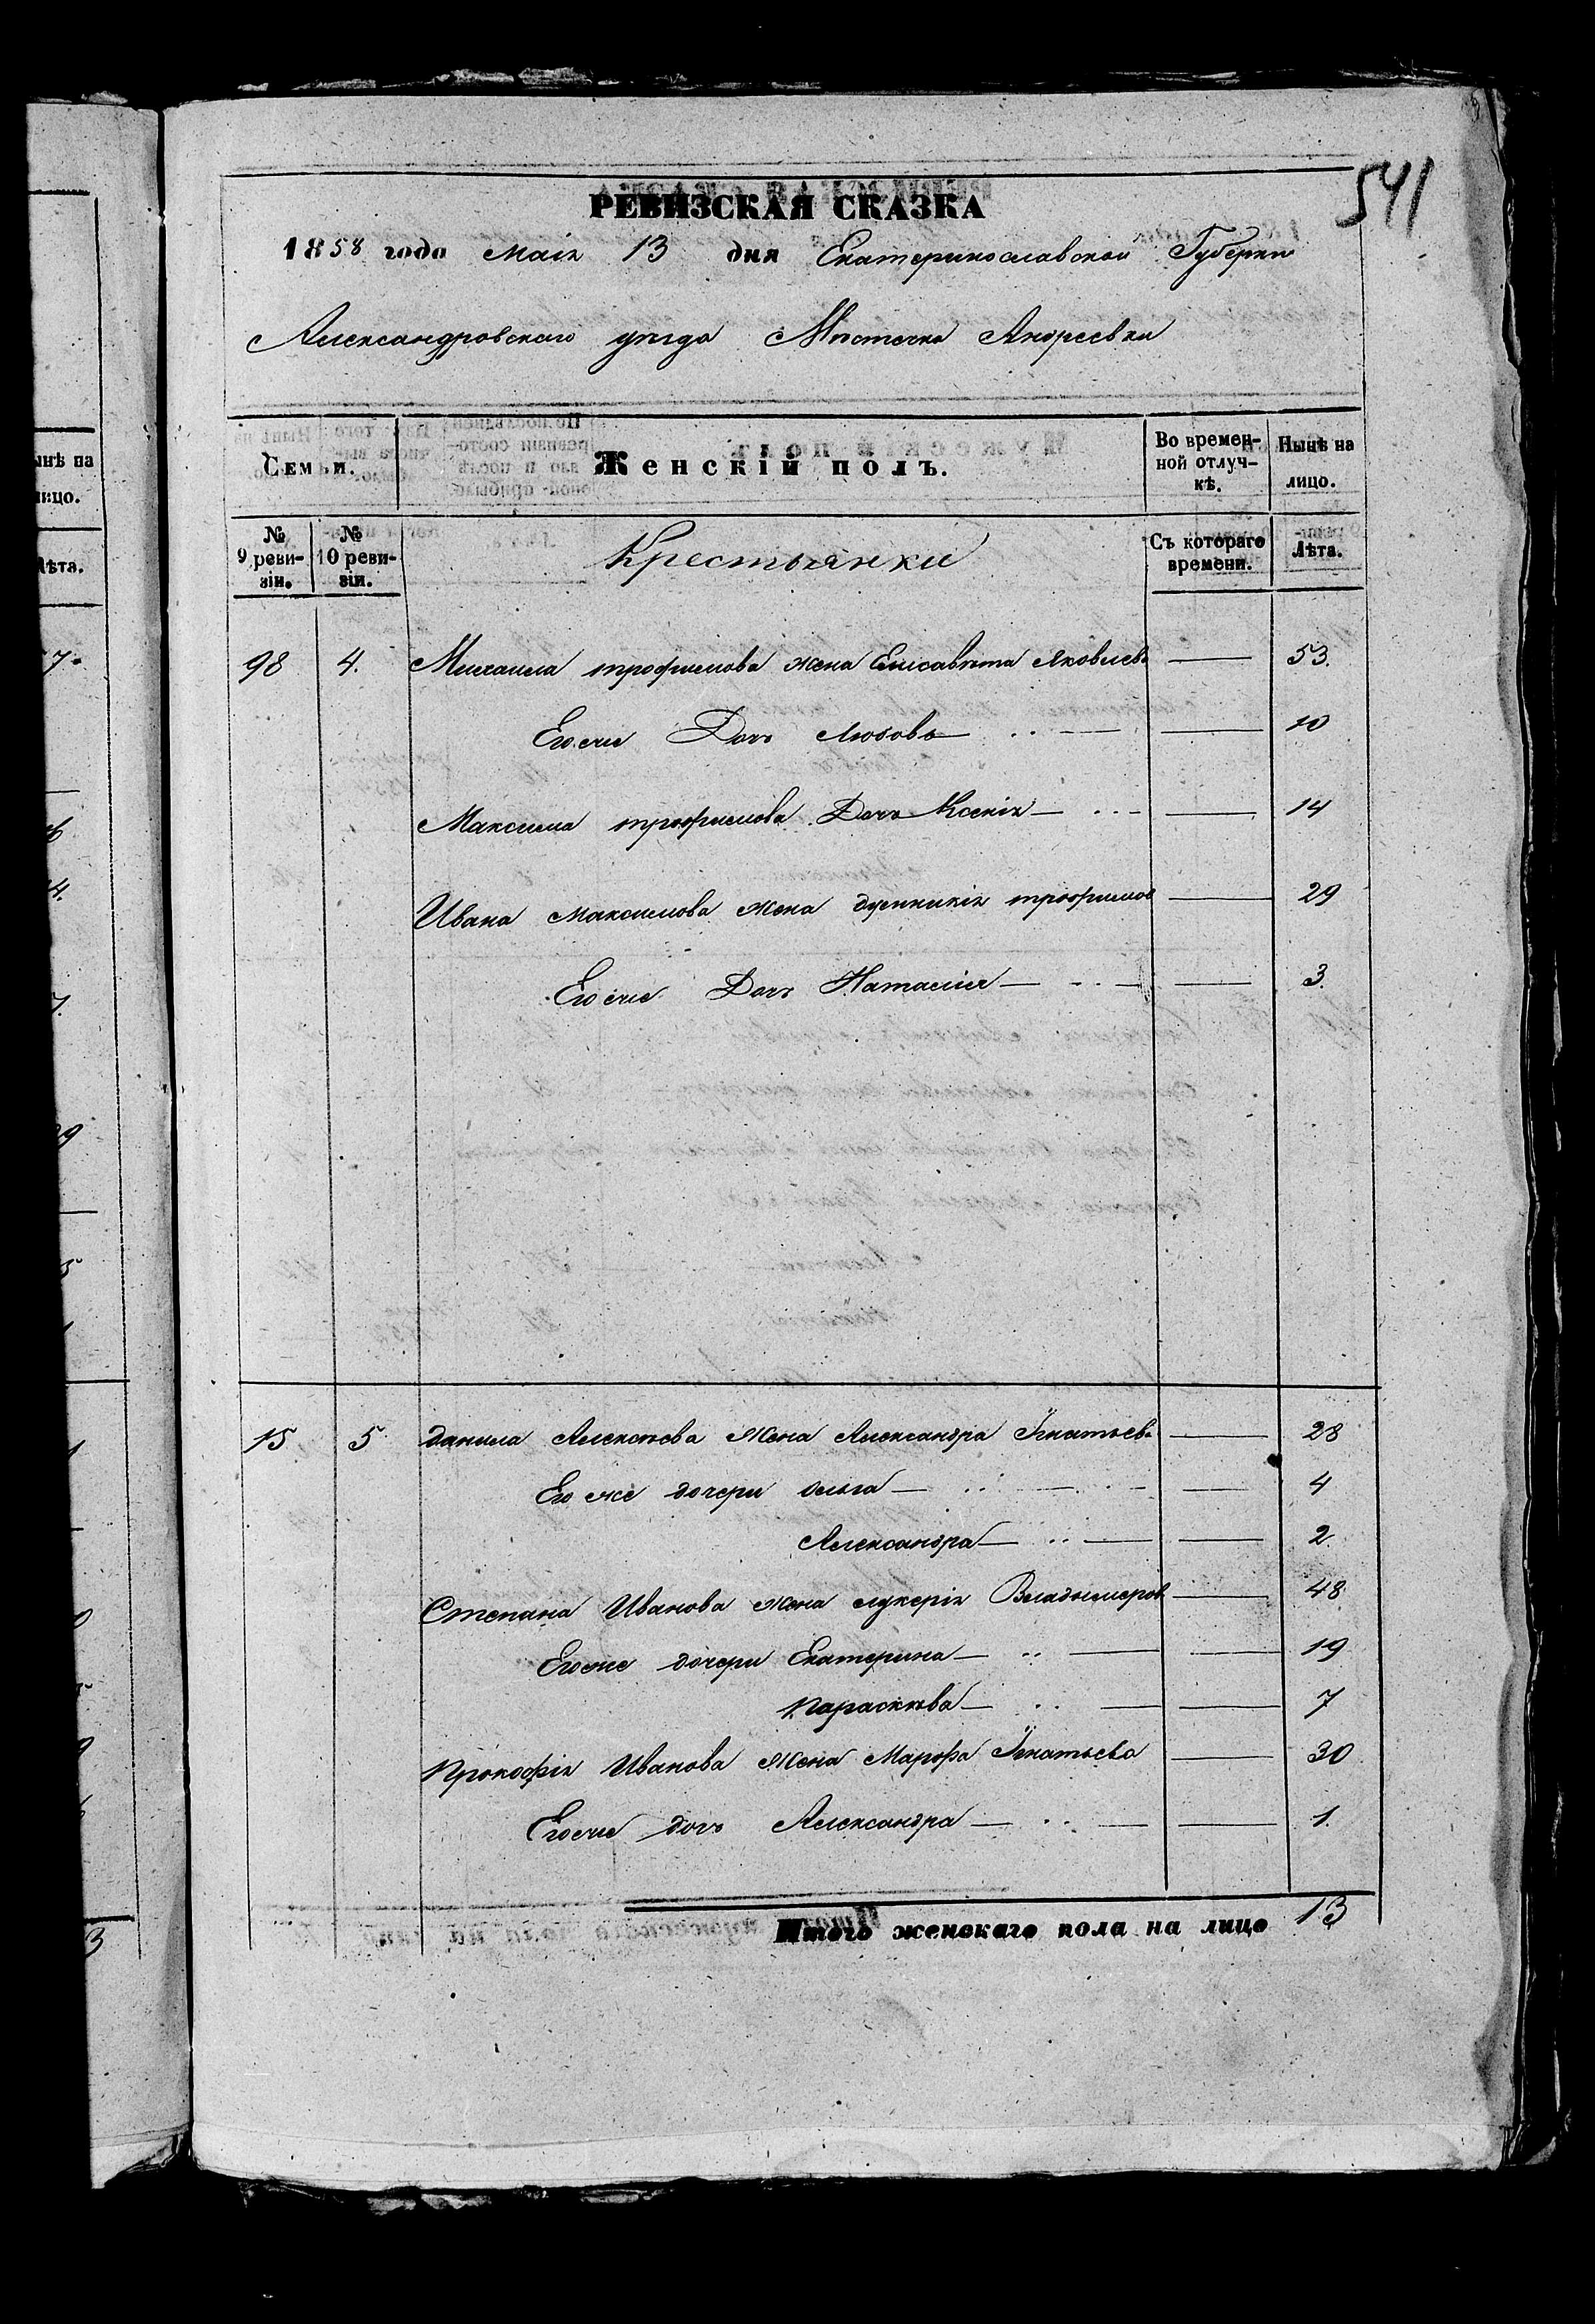 541
РЕВИЗСКАЯ СКАЗКА
1858 года маія 13 дня Екатеринославской Губерніи
Александровскаго уѣзда Мѣстечка Андреевки
Семьи. Женскій полъ. Во времен-ной отлуч-кѣ. Нынѣ на лицо.
№ 9 реви-зіи. № 10 реви-зіи. Крестьянки Съ котораго времени. Лѣта.
98 4. Михаила трофимова жена Елисавѣта Яковлева 53.
Егоже Дочь Любовь 10
Максима трофимова Дочь Ксенія 14
Ивана Максимова жена трофимов 29
Егоже Дочь Наталия 3.
15 5 данила Алексѣева Жена Александра Игнатьева 28
Его же дочери Ольга 4
Александра 2.
Степана Иванова жена лукерія Владымеров 48
Егоже дочери Екатерина 19
Парасковѣа 7
Прокофія Иванова Жена Марфа Игнатьева 30
Егоже дочь Александра 1.
Итого женскаго пола на лицо 13